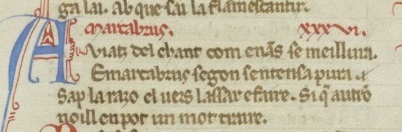 ga lai. ab que si u la flamestantir.
Marcabrus. XXXVI.
Auiatz del chant com enãs se meillura.
E marcabrus segon sentensa pura.
Sap la razo el uers lassar e faire. Si q̃ autrõ
no ill en pot un mot traire.